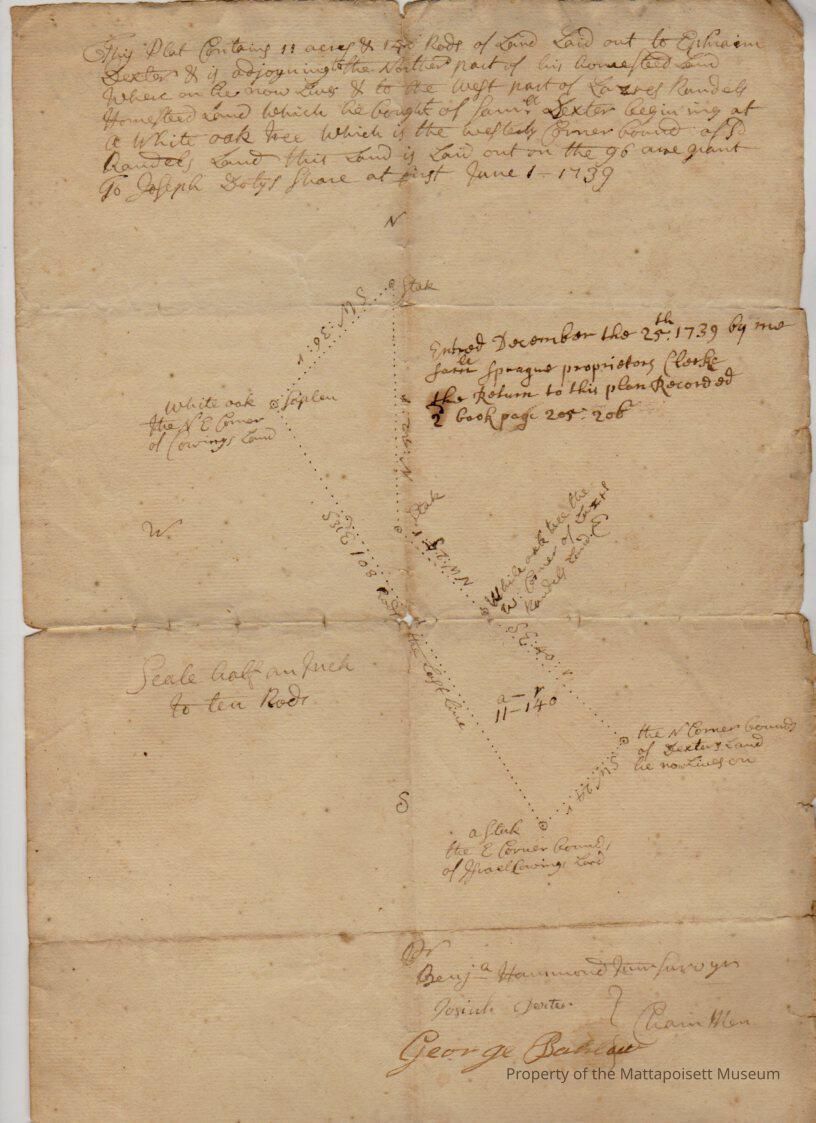 This Plat Contains 11 acres & 140 Rods of Land Laid out to Ephraim
Dexter & is adjoyning to the Norther part of his homested Land
Where on he now Lives & to the West part of Lazrus Randels
Homested Land Which he bought of Samll Dexter begining at
a White oak tree Which is the westerly Corner bound of Sd
Randels Land this Land is Laid out on the 96 acre grant
To Joseph Dotys Share at first June 1 - 1739
N
Stak
S W 36 r
Entred December the 25th: 1739 by me
Samll Sprague proprietors Clerke
the Return to this plan Recorded
2 book page 205: 206
White oak Saplen
the N E Corner
of Cowings Land
N
Stak
N W
White oak tree the
W: Corner of
Randels Land
E
W
S 31 E 108 Rods
the Last line
S E 40 r
Scale half an Inch
to ten Rods
a r
11-140
the N Corner bounds
of Dexters Land
he now Lives on
S W 24 r
S
a Stak
the E Corner bounds
of Israel Cowings Land
Pr
Benja Hammond Junr Survyr
Josiah Dexter
Chain Men
George Barlow
Property of the Mattapoisett Museum